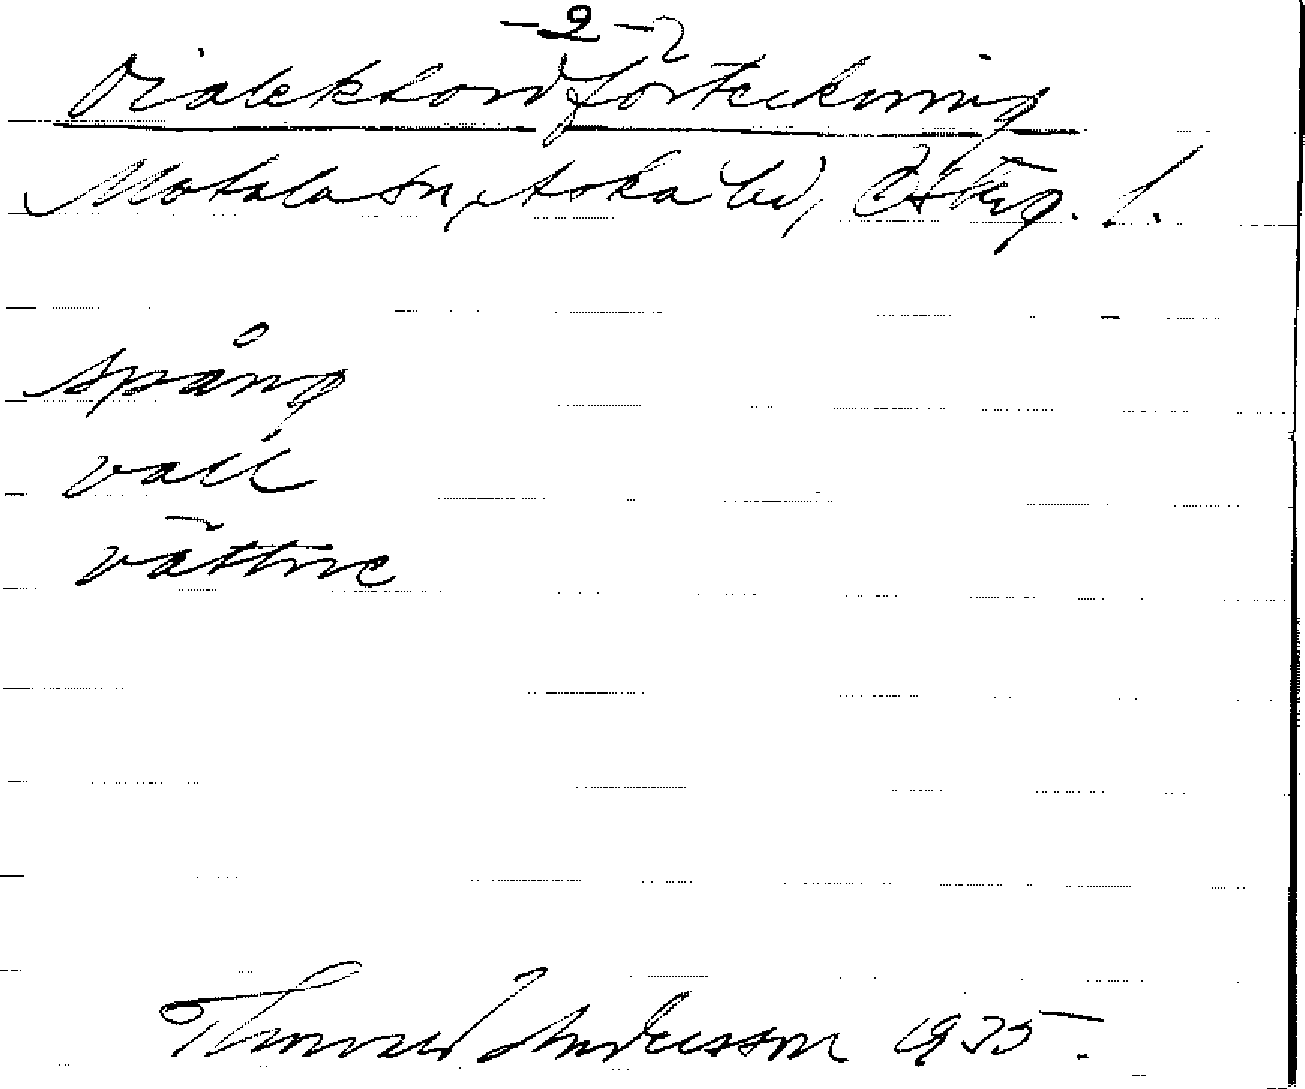 -2-
Dialektordförteckning
Motala sn, Aska hd, Östg. l.
spång
vall
vättne
Andersson 1935.